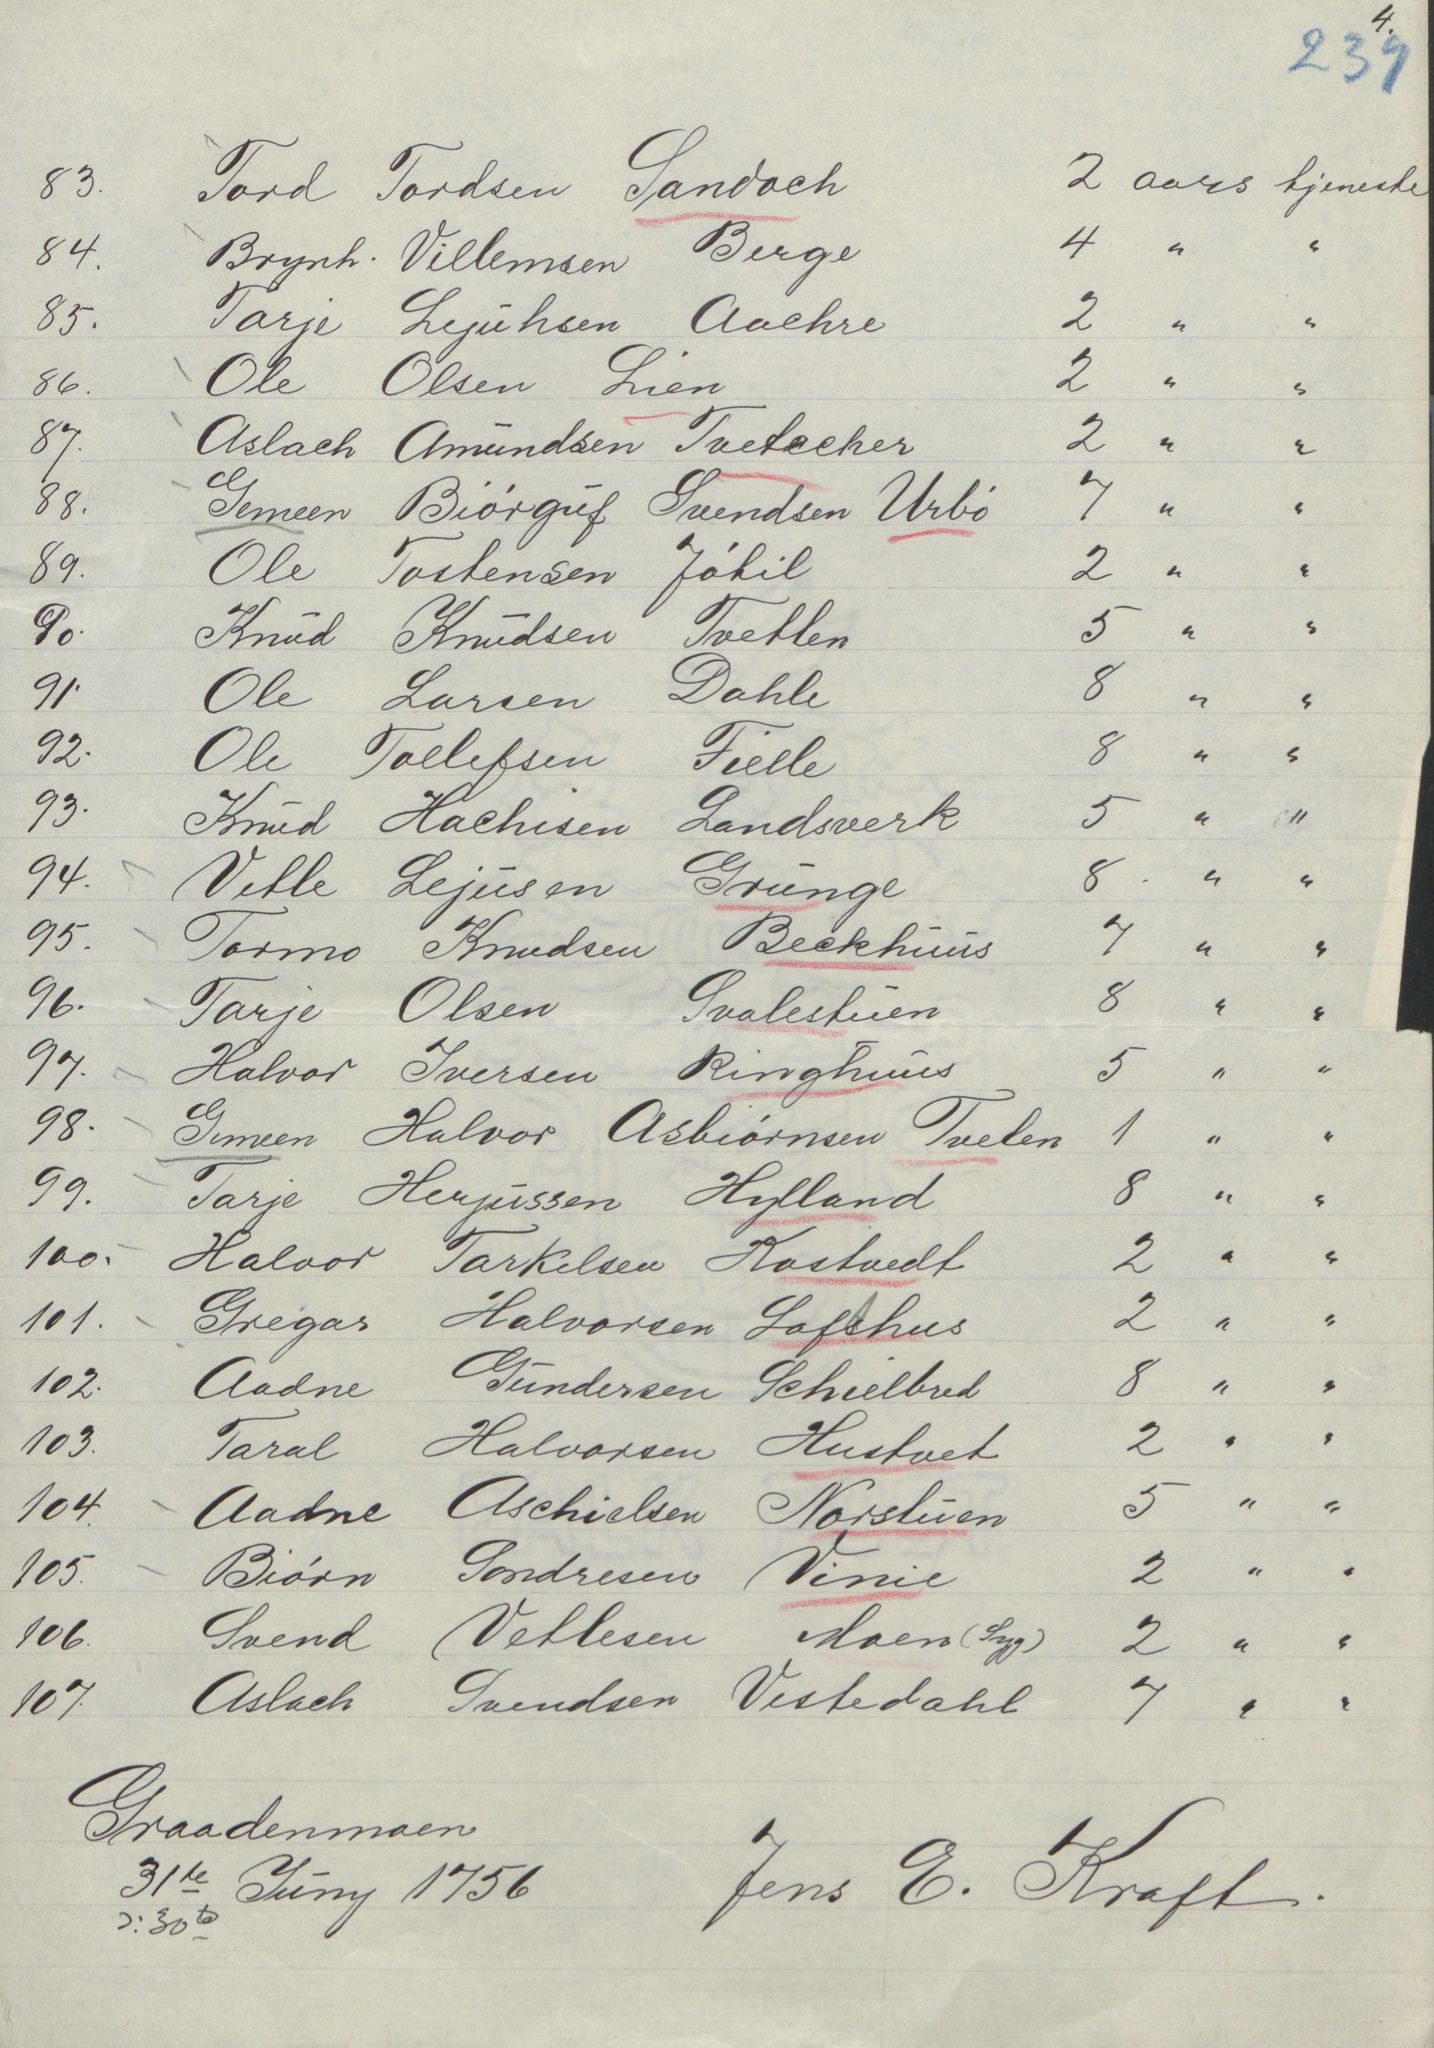 4.
239
83. Tord Tordsen Sandoch 2 aars tjeneste
84. Brynh. Villemsen Berge 4 " "
85. Tarje Lejuhsen Aachre 2 " "
86. Ole Olsen Lien 2 " "
87. Aslach Amundsen Tvetecher 2 " "
88. Gemeen Biórguf Svendsen Urbó 7 " "
89. Ole Tostensen Jókil 2 " "
90. Knud Knudsen Tvetten 5 " "
91. Ole Larsen Dahle 8 " "
92. Ole Tollefsen Fielle 8 " "
93. Knud Hachisen Landsverk 5 " "
94. Vetle Lejusen Grunge 8 " "
95. Tormo Knudsen Beckhuus 7 " "
96. Tarje Olsen Svalestuen 8 " "
97. Halvor Iversen Ringhuus 5 " "
98. Gemeen Halvor Asbiórnsen Tveten 1 " "
99. Tarje Herjussen Hylland 8 " "
100. Halvor Tarkelsen Kostvedt 2 " "
101. Gregar Halvorsen Lofthus 2 " "
102. Aadne Gundersen Schielbred 8 " "
103. Taral Halvorsen Hustvet 2 " "
104. Aadne Aschielsen Norstuen 5 " "
105. Biórn Sondresen Vinie 2 " "
106. Svend Vetlesen Moen (Syg) 2 " "
107. Aslach Svendsen Vestedahl 7 " "
Graadenmoen
31te Juny 1756 Jens E. Kraft.
ɔ: 30te